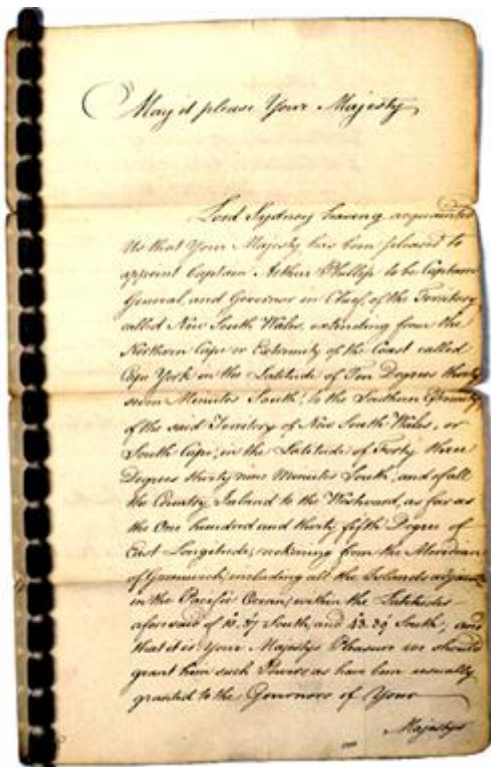 May it please Your Majesty
Lord Sydney having acquainted
Us that Your Majesty has been pleased to
appoint Captain Arthur Phillip to be Captain
General, and Governor in Chief, of the Territory
called New South Wales, extending from the
Northern Cape or Extremity of the Coast called
Cape York in the Latitude of Ten Degrees thirty
seven Minutes South, to the Southern Extremity
of the said Territory of New South Wales, or
South Cape, in the Latitude of Forty three
Degrees thirty nine Minutes South, and of all
the Country Inland to the Westward, as far as
the One hundred and thirty fifth Degree of
East Longitude, reckoning from the Meridian
of Greenwich, including all the Islands adjacent
in the Pacific Ocean, within the Latitudes
aforesaid of 10.37 South, and 43.39 South, and
that it is Your Majestys Pleasure we should
grant him such Powers as have been usually
granted to the Governors of Your
Majestys